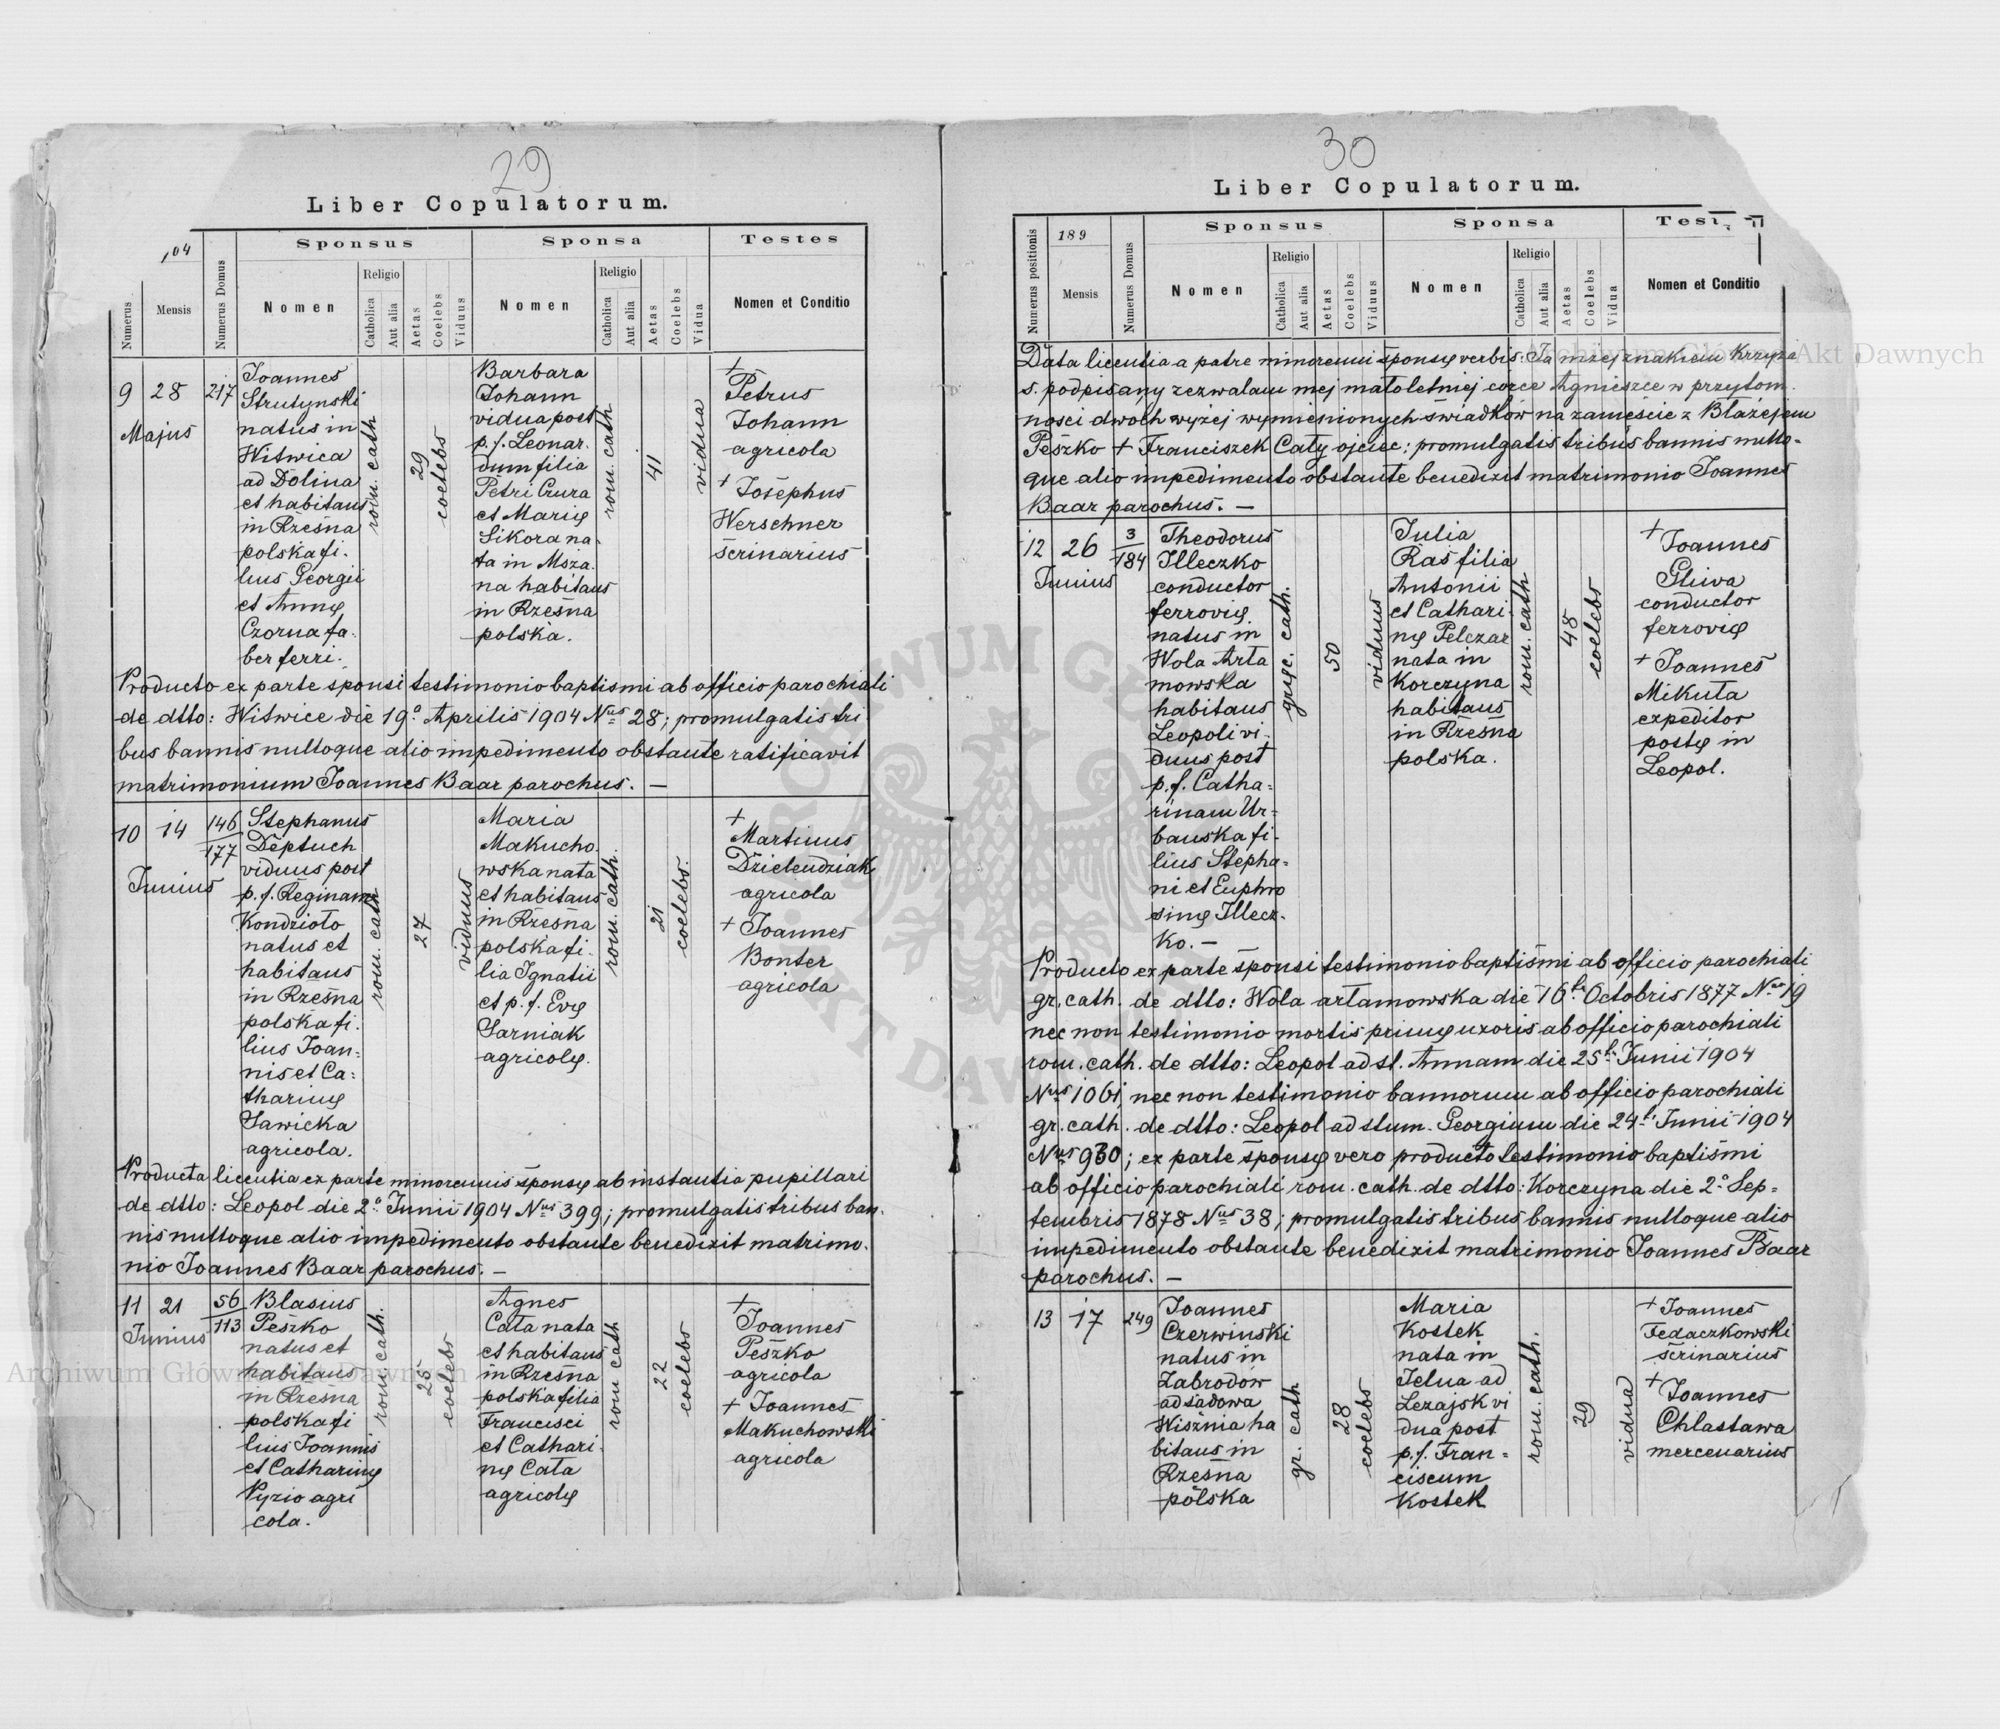 29
Liber Copulatorum.
Numerus
104
Mensis
Numerus Domus
Sponsus
Nomen
Religio
Catholica
Aut alia
Aetas
Coelebs
Viduus
Sponsa
Nomen
Religio
Catholica
Aut alia
Aetas
Coelebs
Vidua
Testes
Nomen et Conditio
9
28
Majus
217
Joannes
Strutynski
natus in
Witwica
ad Dolina
et habitans
in Rzesna
polska fi-
lius Georgii
et Annę
Czorna fa-
ber ferri.
rom. cath
29
coelebs
Barbara
Johann
vidua post
p. f. Leonar-
dum filia
Petri Czura
et Marię
Sikora na-
ta in Msza-
na habitans
in Rzesna
polska.
rom. cath
41
vidua
+
Petrus
Johann
agricola
+ Josephus
Werschner
scrinarius
Producto ex parte sponsi testimonio baptismi ab officio parochiali
de dtto: Witwice die 19º Aprilis 1904 Nus 28; promulgatis tri-
bus bannis nulloque alio impedimento obstante ratificavit
matrimonium Joannes Baar parochus. —
10
14
Junius
146
177
Stephanus
Deptuch
viduus post
p. f. Reginam
Kondzioło
natus et
habitans
in Rzesna
polska fi-
lius Joan=
nis et Ca=
tharinę
Sawicka
agricola.
rom. cath
27
viduus
Maria
Makucho-
wska nata
et habitans
in Rzesna
polska fi-
lia Ignatii
et p. f. Evę
Sarniak
agricolę.
rom. cath.
21
coelebs.
+
Martinus
Dzielendziak
agricola
+ Joannes
Bonter
agricola
Producta licentia ex parte minorennis sponsę ab instantia pupillari
de dtto: Leopol die 2º Junii 1904 Nus 399; promulgatis tribus ban-
nis nulloque alio impedimento obstante benedixit matrimo-
nio Joannes Baar parochus. —
11
21
Junius
56
113
Blasius
Peszko
natus et
habitans
in Rzesna
polska fi
lius Joannis
et Catharinę
Pyzio agri
cola.
rom. cath.
25
coelebs
Agnes
Cała nata
et habitans
in Rzesna
polska filia
Francisci
et Cathari-
nę Cała
agricolę
rom cath
22
coelebs
+
Joannes
Peszko
agricola
+ Joannes
Makuchowski
agricola
30
Liber Copulatorum.
Numerus positionis
189
Mensis
Numerus Domus
Sponsus
Nomen
Religio
Catholica
Aut alia
Aetas
Coelebs
Viduus
Sponsa
Nomen
Religio
Catholica
Aut alia
Aetas
Coelebs
Vidua
Nomen et Conditio
Data licentia a patre minorenni sponsę verbis: Ja niżej znakiem krzyża
s. podpisany zezwalam mej małoletniej córce Agnieszce w przytom-
ności dwóch wyżej wymienionych świadków na zamęście z Błażejem
Peszko + Franciszek Cały ojciec: promulgatis tribus bannis nullo-
que alio impedimento obstante benedixit matrimonio Joannes
Baar parochus. —
12
26
Junius
3
184
Theodorus
Illeczko
conductor
ferrovię
natus in
Wola Arta
mowska
habitans
Leopoli vi-
duus post
p. f. Catha-
rinam Ur-
banska fi-
lius Stepha-
ni et Euphro
sinę Illecz-
ko. —
gręc. cath.
50
viduus
Julia
Ras filia
Antonii
et Cathari-
nę Pelczar
nata in
Korczyna
habitans
in Rzesna
polska.
rom. cath
48
coelebs
+ Joannes
Gliwa
conductor
ferrovię
+ Joannes
Mikuta
expeditor
postę in
Leopol.
Producto ex parte sponsi testimonio baptismi ab officio parochiali
gr. cath. de dtto: Wola artamowska die 16ti Octobris 1877 Nus 19
nec non testimonio mortis primę uxoris ab officio parochiali
rom. cath. de dtto: Leopol ad st. Annam die 25ti Junii 1904
Nus 1061 nec non testimonio bannorum ab officio parochiali
gr. cath. de dtto: Leopol ad stum. Georgium die 24ti Junii 1904
Nus 930; ex parte sponsę vero producto testimonio baptismi
ab officio parochiali rom. cath. de dtto: Korczyna die 2º Sep=
tembris 1878 Nus 38; promulgatis tribus bannis nulloque alio
impedimento obstante benedixit matrimonio Joannes Baar
parochus. —
13
17
249
Joannes
Czerwinski
natus in
Zabrodow
ad Sadowa
Wisznia ha
bitans in
Rzesna
polska
gr. cath
28
coelebs
Maria
Kostek
nata in
Jelna ad
Lezajsk vi
dua post
p. f. Fran=
ciscum
Kostek
rom. cath.
29
vidua
+ Joannes
Fedaczkowski
scrinarius
+ Joannes
Chlastawa
mercenarius
Archiwum Główne Akt Dawnych
Archiwum Główne Akt Dawnych
ARCHIWUM GŁÓWNE AKT DAWNYCH